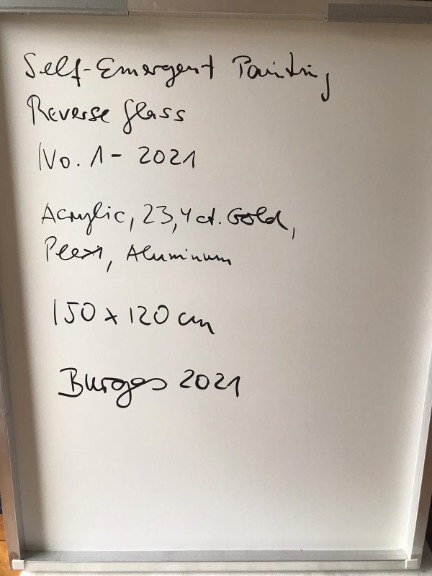 Self-Emergent Painting
Reverse Glass
No. 1 - 2021
Acrylic, 23,4 ct. Gold,
Plexi, Aluminum
150 x 120 cm
Burges 2021